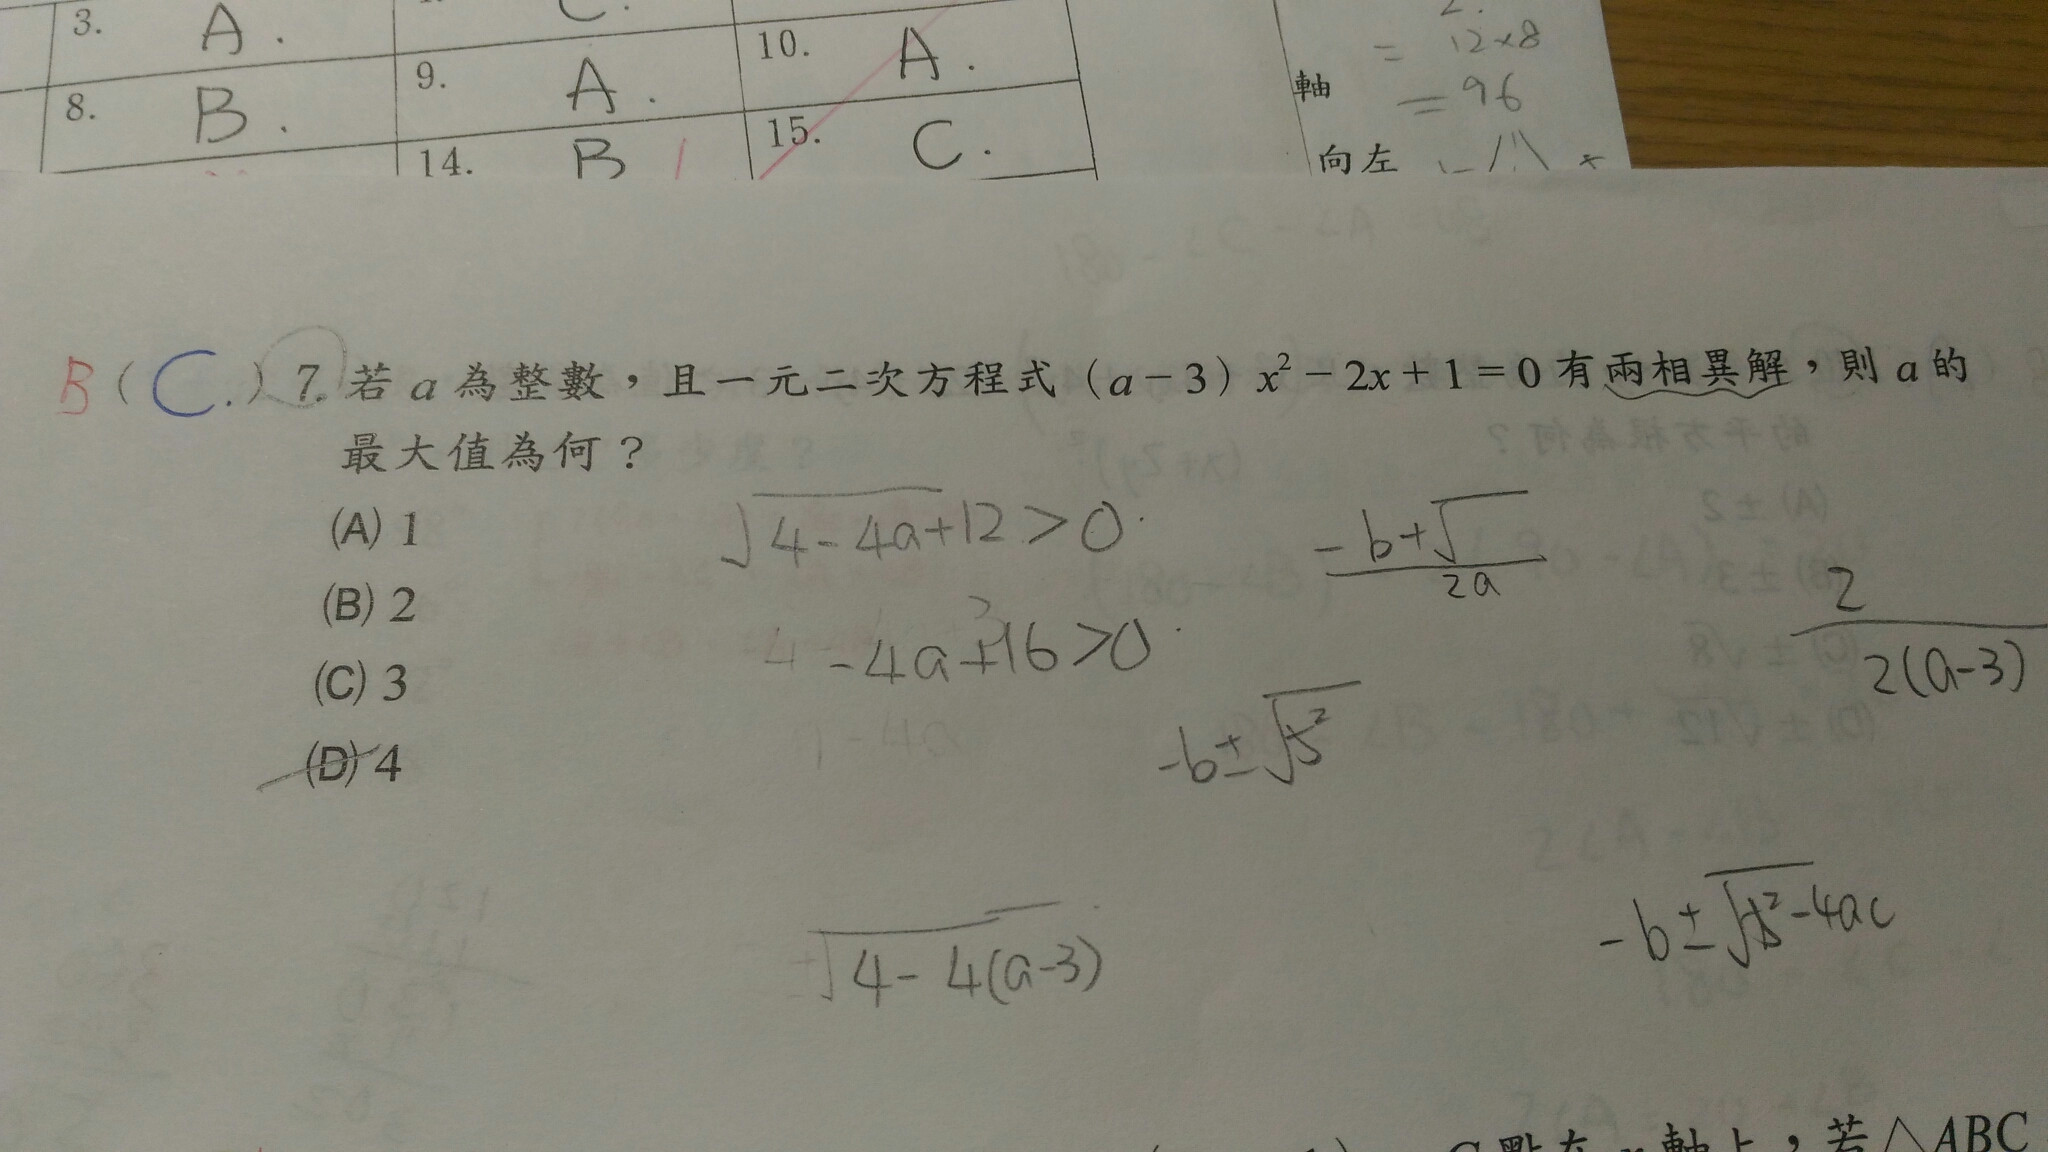 3. A.
C.
8. B.
9. A.
10. A.
14. B
15. C.
= 12×8
軸 = 96
向左
B ( C. ) 7. 若 a 為整數，且一元二次方程式（a－3）x²－2x＋1＝0 有兩相異解，則 a 的
最大值為何？
(A) 1
(B) 2
(C) 3
(D) 4
√4-4a+12 > 0
-4a+16 > 0
-b+√
2a
2
2(a-3)
-b±√b²
√4-4(a-3)
-b±√b²-4ac
軸上，若△ABC